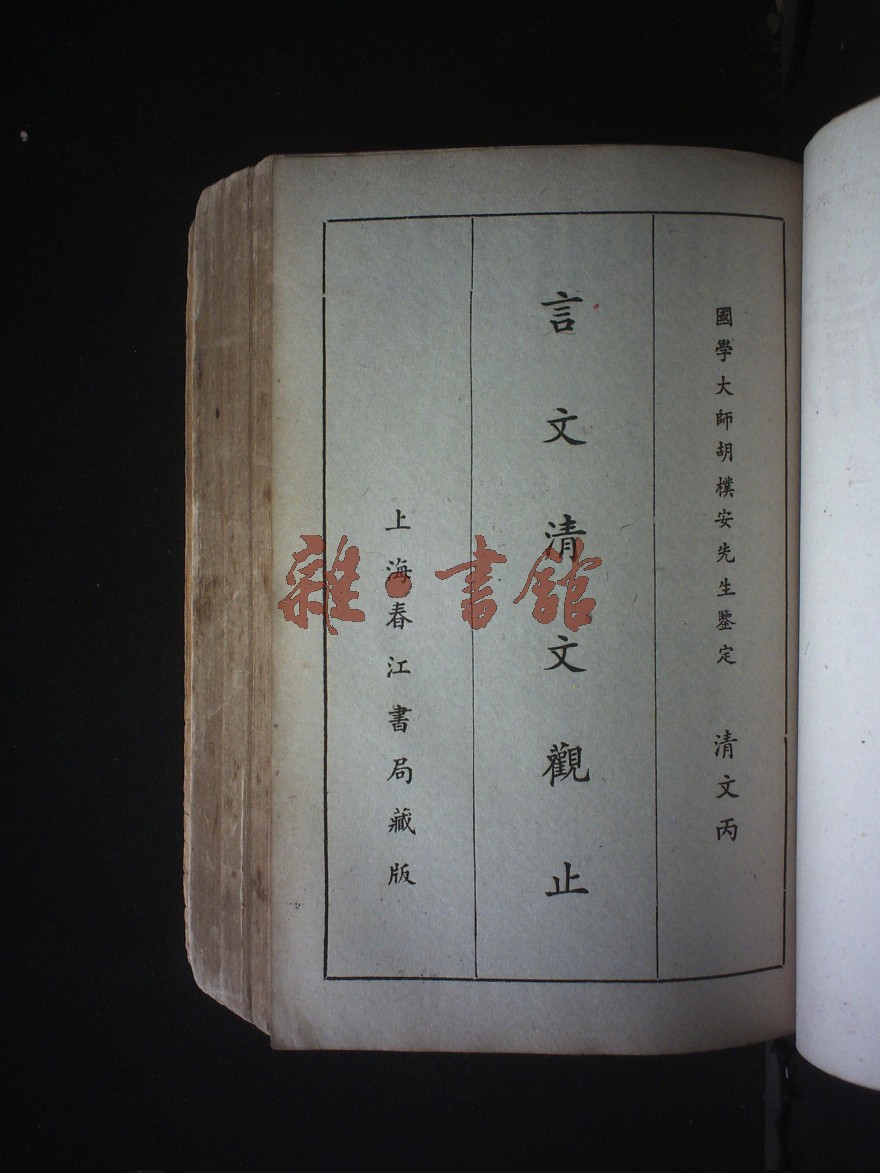 國學大師胡樸安先生鑒定 清文丙
言文清文觀止
上海春江書局藏版
雜·書館